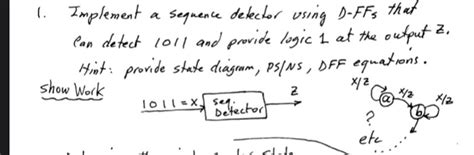 1. Implement a sequence detector using D-FFs that
can detect 1011 and provide logic 1 at the output Z.
Hint: provide state diagram, PS/NS, DFF equations.
Show Work
X/Z
X/Z
X/Z
1011=X
seq.
Detector
Z
a
b
?
etc